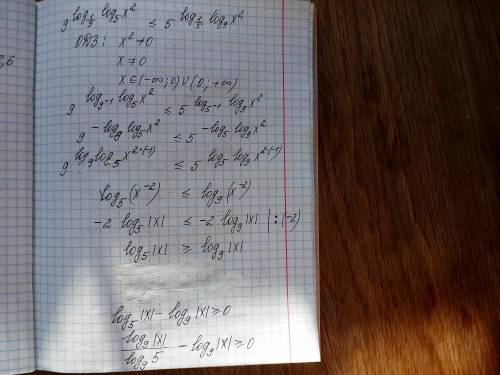 9^{log_{1/9} log_5 x^2} ≤ 5^{log_{1/5} log_9 x^2}
ОДЗ: x^2 ≠ 0
x ≠ 0
x ∈ (-∞; 0) ∪ (0; +∞)
9^{log_{9^{-1}} log_5 x^2} ≤ 5^{log_{5^{-1}} log_9 x^2}
9^{-log_9 log_5 x^2} ≤ 5^{-log_5 log_9 x^2}
9^{log_9 log_5 x^{2·(-1)}} ≤ 5^{log_5 log_9 x^{2·(-1)}}
log_5 (x^{-2}) ≤ log_9 (x^{-2})
-2 log_5 |x| ≤ -2 log_9 |x| | : (-2)
log_5 |x| ≥ log_9 |x|
log_5 |x| - log_9 |x| ≥ 0
\frac{log_9 |x|}{log_9 5} - log_9 |x| ≥ 0